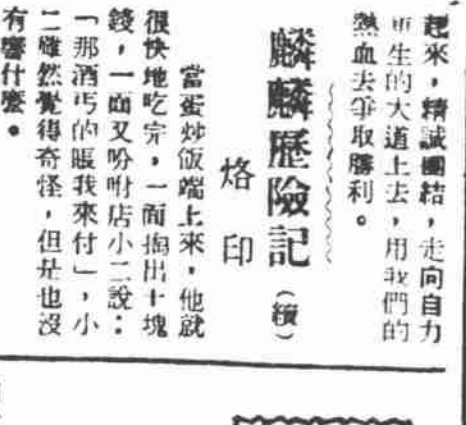 起來，精誠團結，走向自力
更生的大道上去，用我們的
熱血去爭取勝利。
麟麟歷險記（續）
烙印
當蛋炒飯端上來，他就
很快地吃完，一面掏出十塊
錢，一面又吩咐店小二說：
「那酒丐的賬我來付」，小
二雖然覺得奇怪，但是也沒
有響什麼。